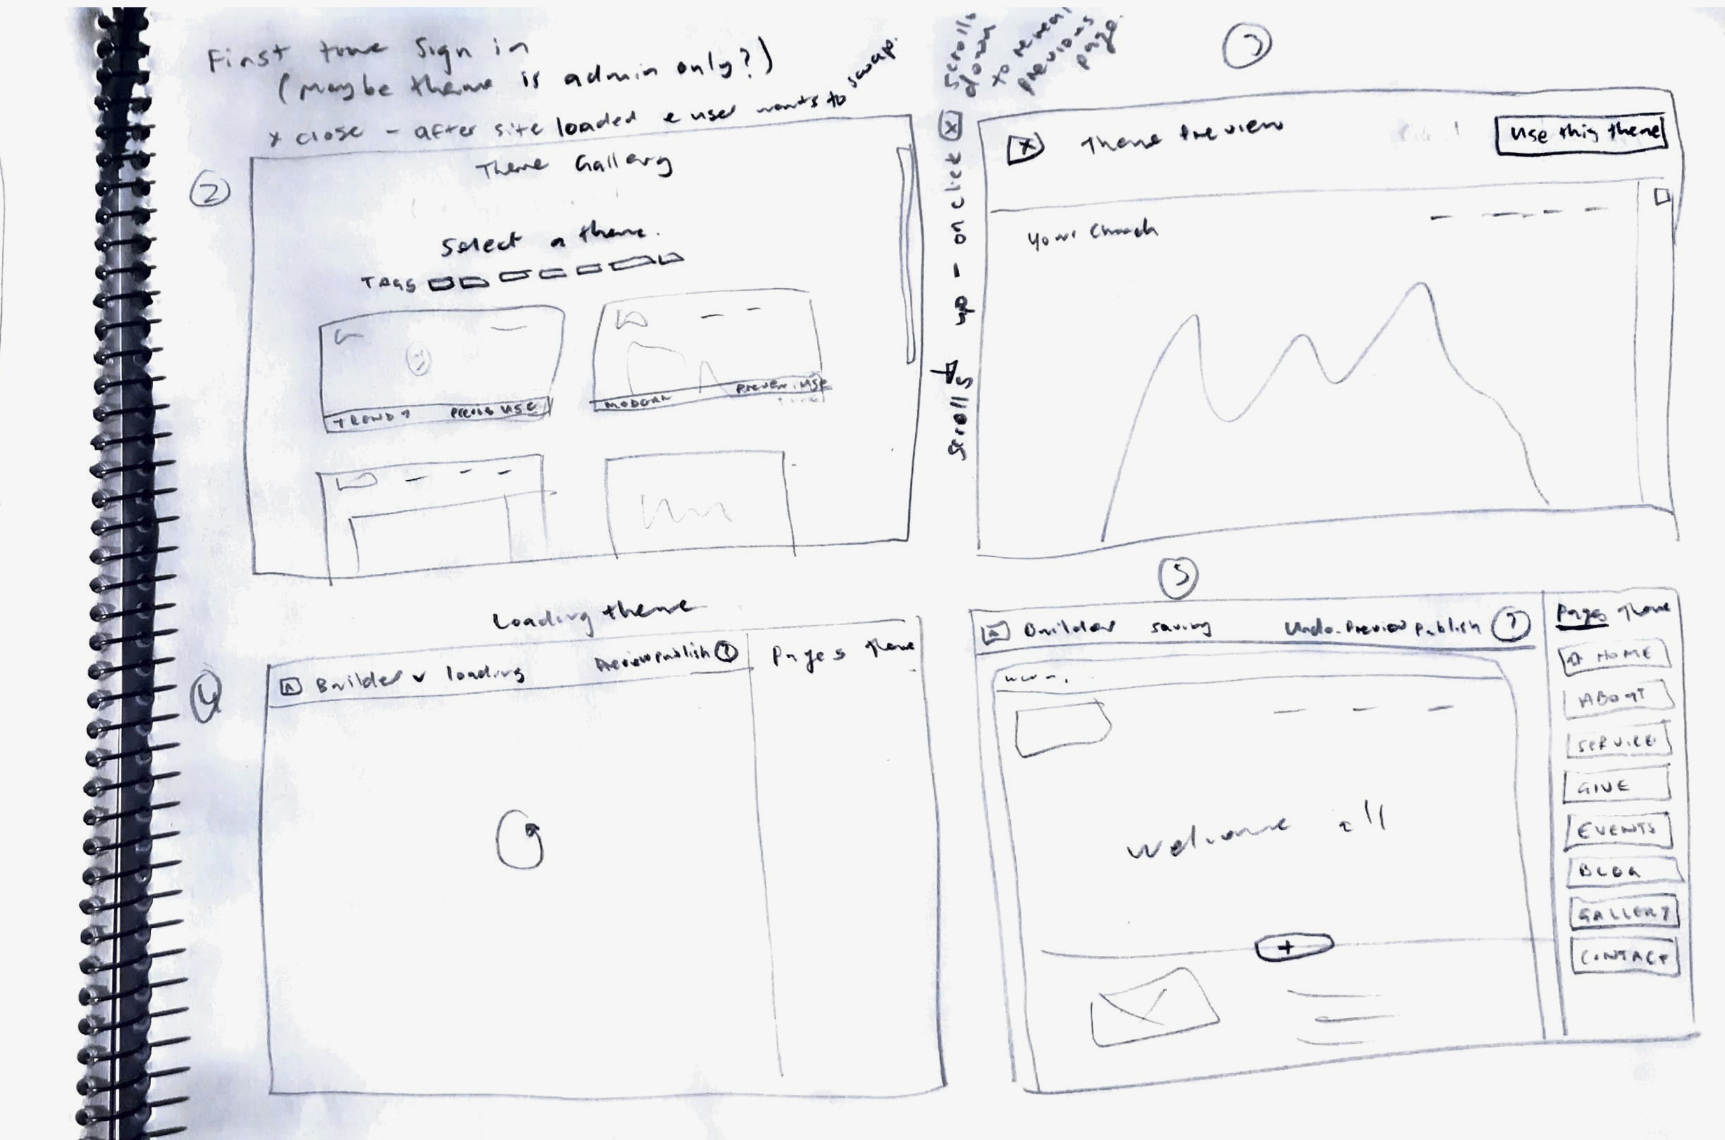 First time sign in
(Maybe theme is admin only?)
x close - after site loaded & user wants to swap.
2
Theme Gallery
Select a theme.
TAGS
TRENDY
USE
MODERN
PREVIEW USE
scrolls up - on click x scrolls down to reveal previous page.
3
x Theme Preview
Use this theme
Your Church
Loading theme
4
Builder v loading Preview publish ?
Pages Theme
5
Builder saving Undo. Preview publish ?
Pages Theme
www.
HOME
ABOUT
SERVICE
GIVE
EVENTS
BLOG
GALLERY
CONTACT
Welcome all
+